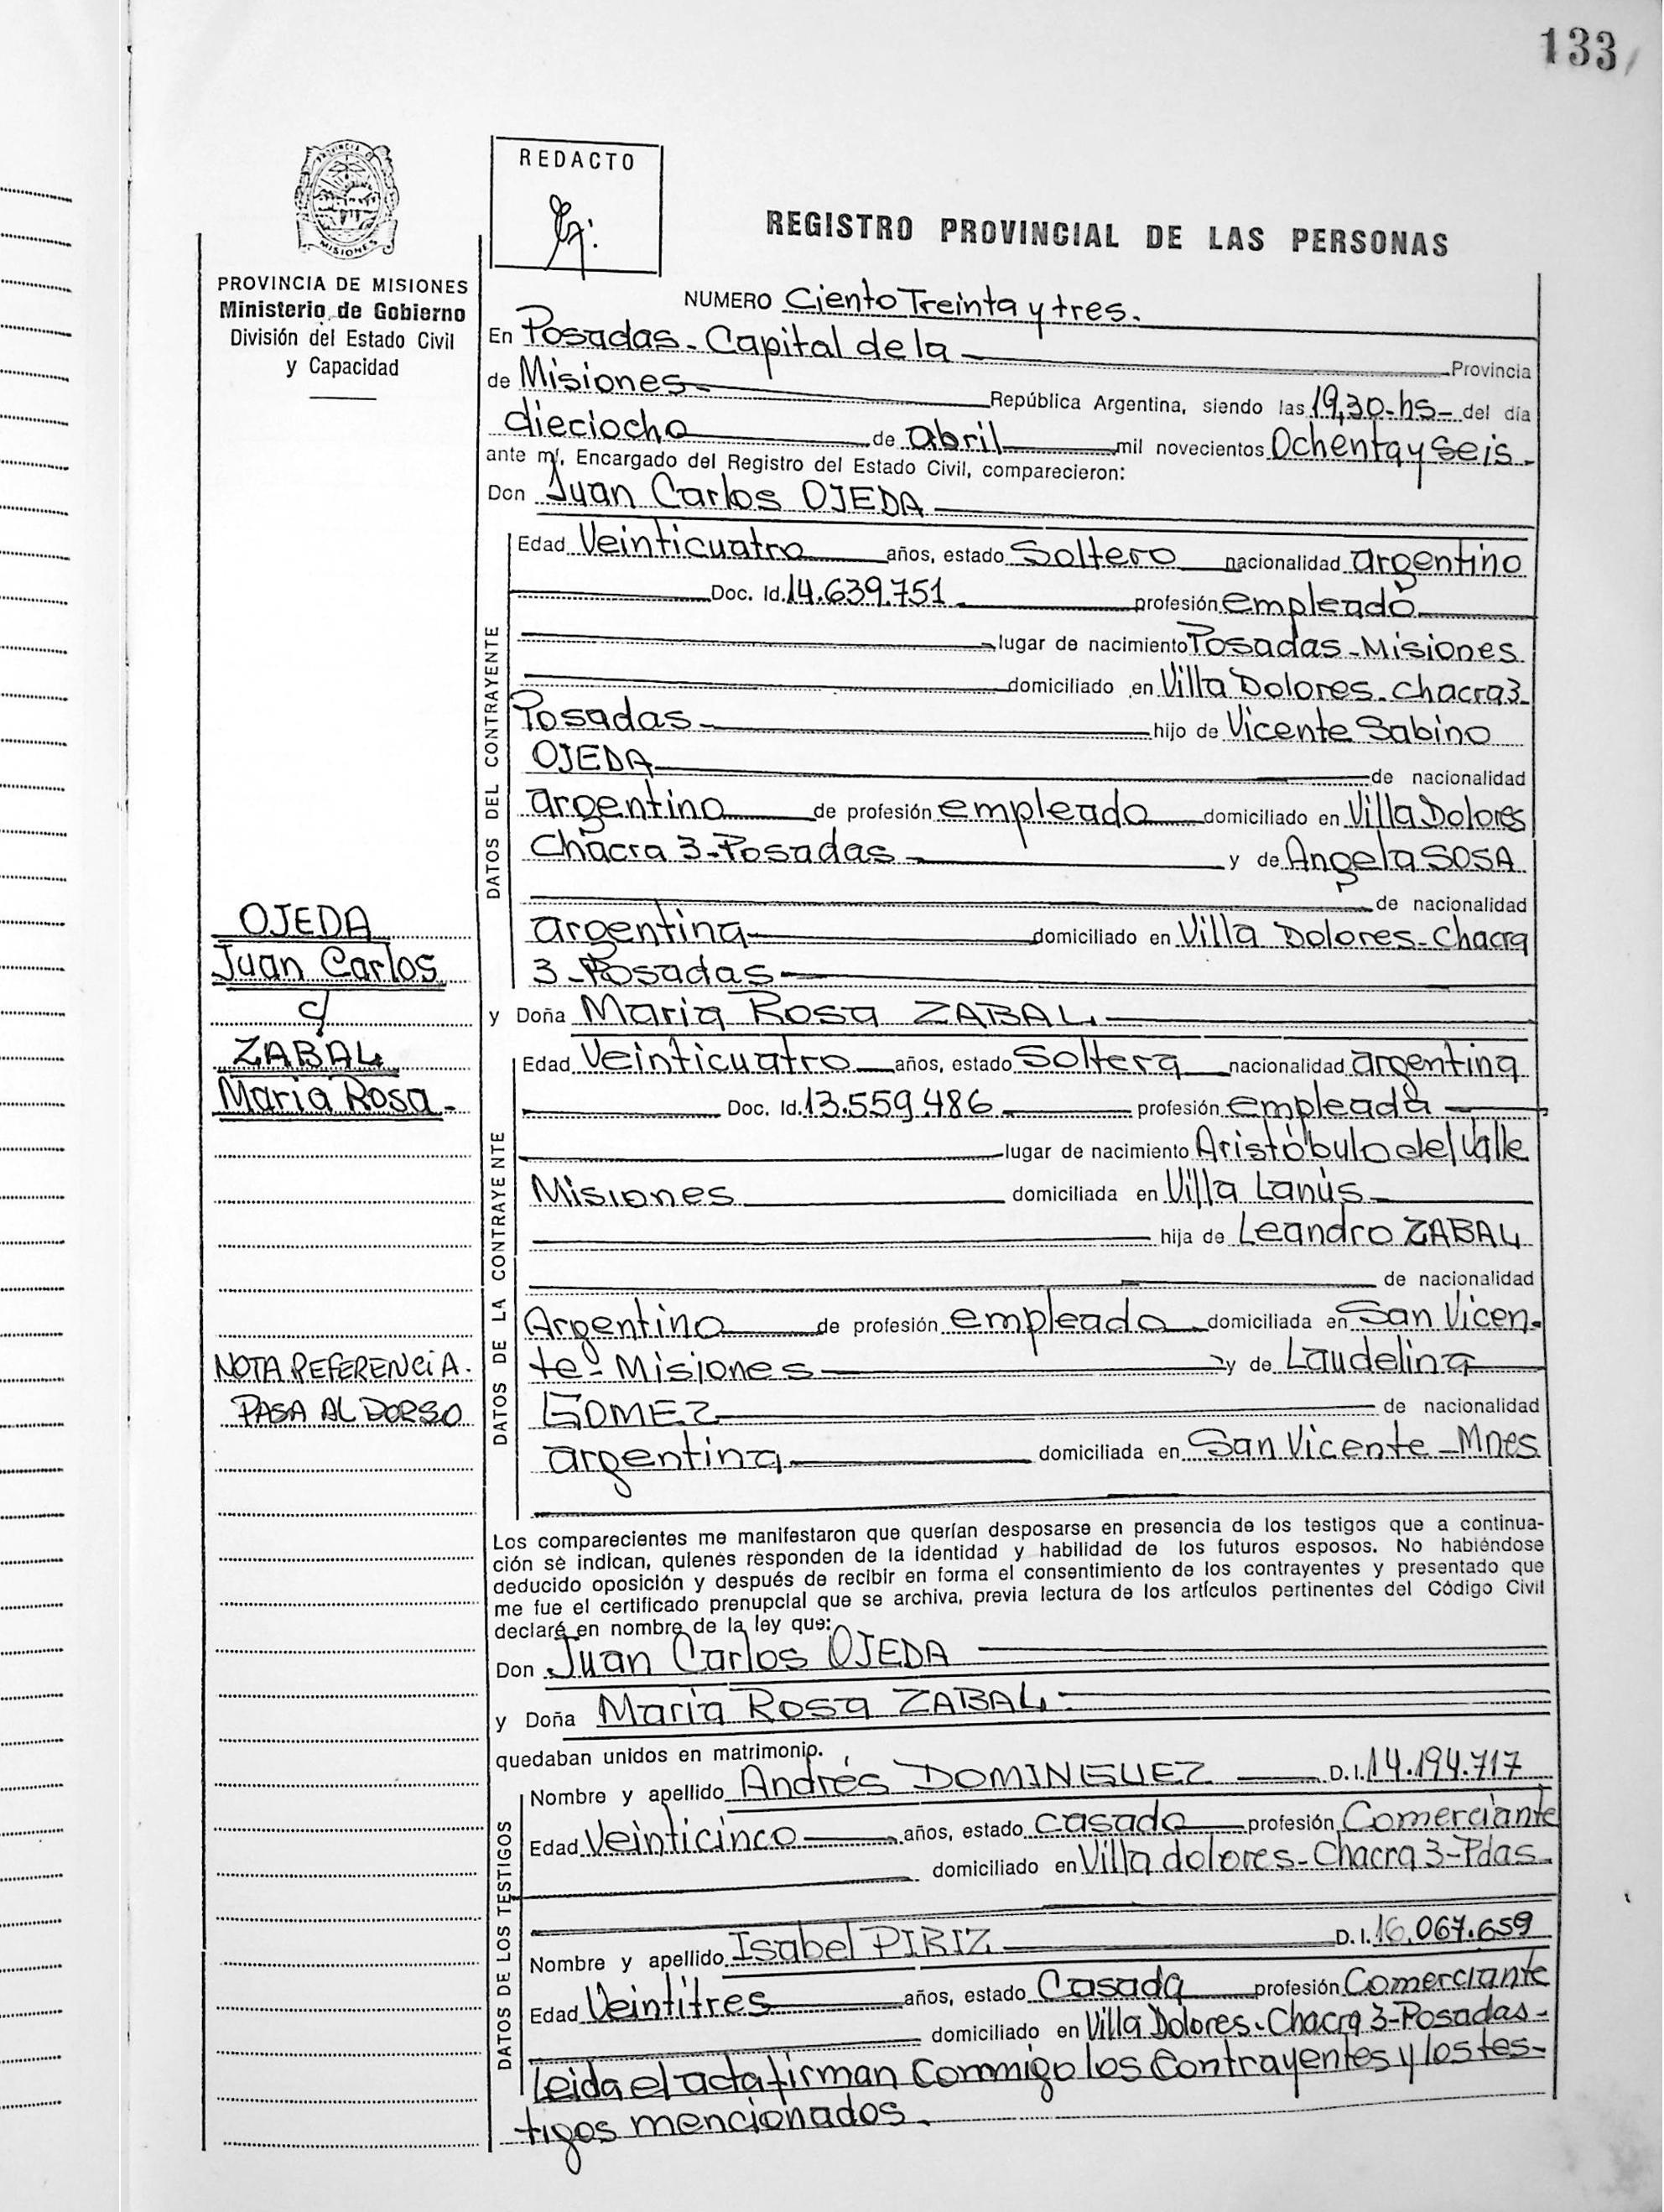 133
REDACTO
PROVINCIA DE MISIONES
Ministerio de Gobierno
División del Estado Civil
y Capacidad
REGISTRO PROVINCIAL DE LAS PERSONAS
NUMERO Ciento Treinta y tres.
En Posadas - Capital de la Provincia
de Misiones República Argentina, siendo las 19,30-hs- del día
dieciocho de abril mil novecientos Ochenta y Seis.
ante mí, Encargado del Registro del Estado Civil, comparecieron:
Don Juan Carlos OJEDA
DATOS DEL CONTRAYENTE
Edad Veinticuatro años, estado Soltero nacionalidad argentino
Doc. Id. 14.639.751 profesión empleado
lugar de nacimiento Posadas-Misiones
domiciliado en Villa Dolores-Chacra 3-
Posadas hijo de Vicente Sabino
OJEDA de nacionalidad
argentino de profesión empleado domiciliado en Villa Dolores
Chacra 3-Posadas y de Angela SOSA
de nacionalidad
argentina domiciliado en Villa Dolores-Chacra
3-Posadas
y Doña Maria Rosa ZABAL
DATOS DE LA CONTRAYENTE
Edad Veinticuatro años, estado Soltera nacionalidad argentina
Doc. Id. 13.559.486 profesión empleada
lugar de nacimiento Aristóbulo del Valle
Misiones domiciliada en Villa Lanús
hija de Leandro ZABAL
de nacionalidad
Argentino de profesión empleado domiciliada en San Vicen-
te-Misiones y de Laudelina
GOMEZ de nacionalidad
argentina domiciliada en San Vicente-Mnes
OJEDA
Juan Carlos
c/
ZABAL
Maria Rosa-
NOTA REFERENCIA.
PASA AL DORSO
Los comparecientes me manifestaron que querían desposarse en presencia de los testigos que a continua-
ción se indican, quienes responden de la identidad y habilidad de los futuros esposos. No habiéndose
deducido oposición y después de recibir en forma el consentimiento de los contrayentes y presentado que
me fue el certificado prenupcial que se archiva, previa lectura de los artículos pertinentes del Código Civil
declaré en nombre de la ley que:
Don Juan Carlos OJEDA
y Doña Maria Rosa ZABAL
quedaban unidos en matrimonio.
DATOS DE LOS TESTIGOS
Nombre y apellido Andrés DOMINGUEZ D.I. 14.194.717
Edad Veinticinco años, estado casado profesión Comerciante
domiciliado en Villa dolores-Chacra 3-Pdas.
Nombre y apellido Isabel PIRIZ D.I. 16.067.659
Edad Veintitres años, estado Casada profesión Comerciante
domiciliado en Villa Dolores-Chacra 3-Posadas-
Leida el acta firman Commigo los Contrayentes y los tes-
tigos mencionados.